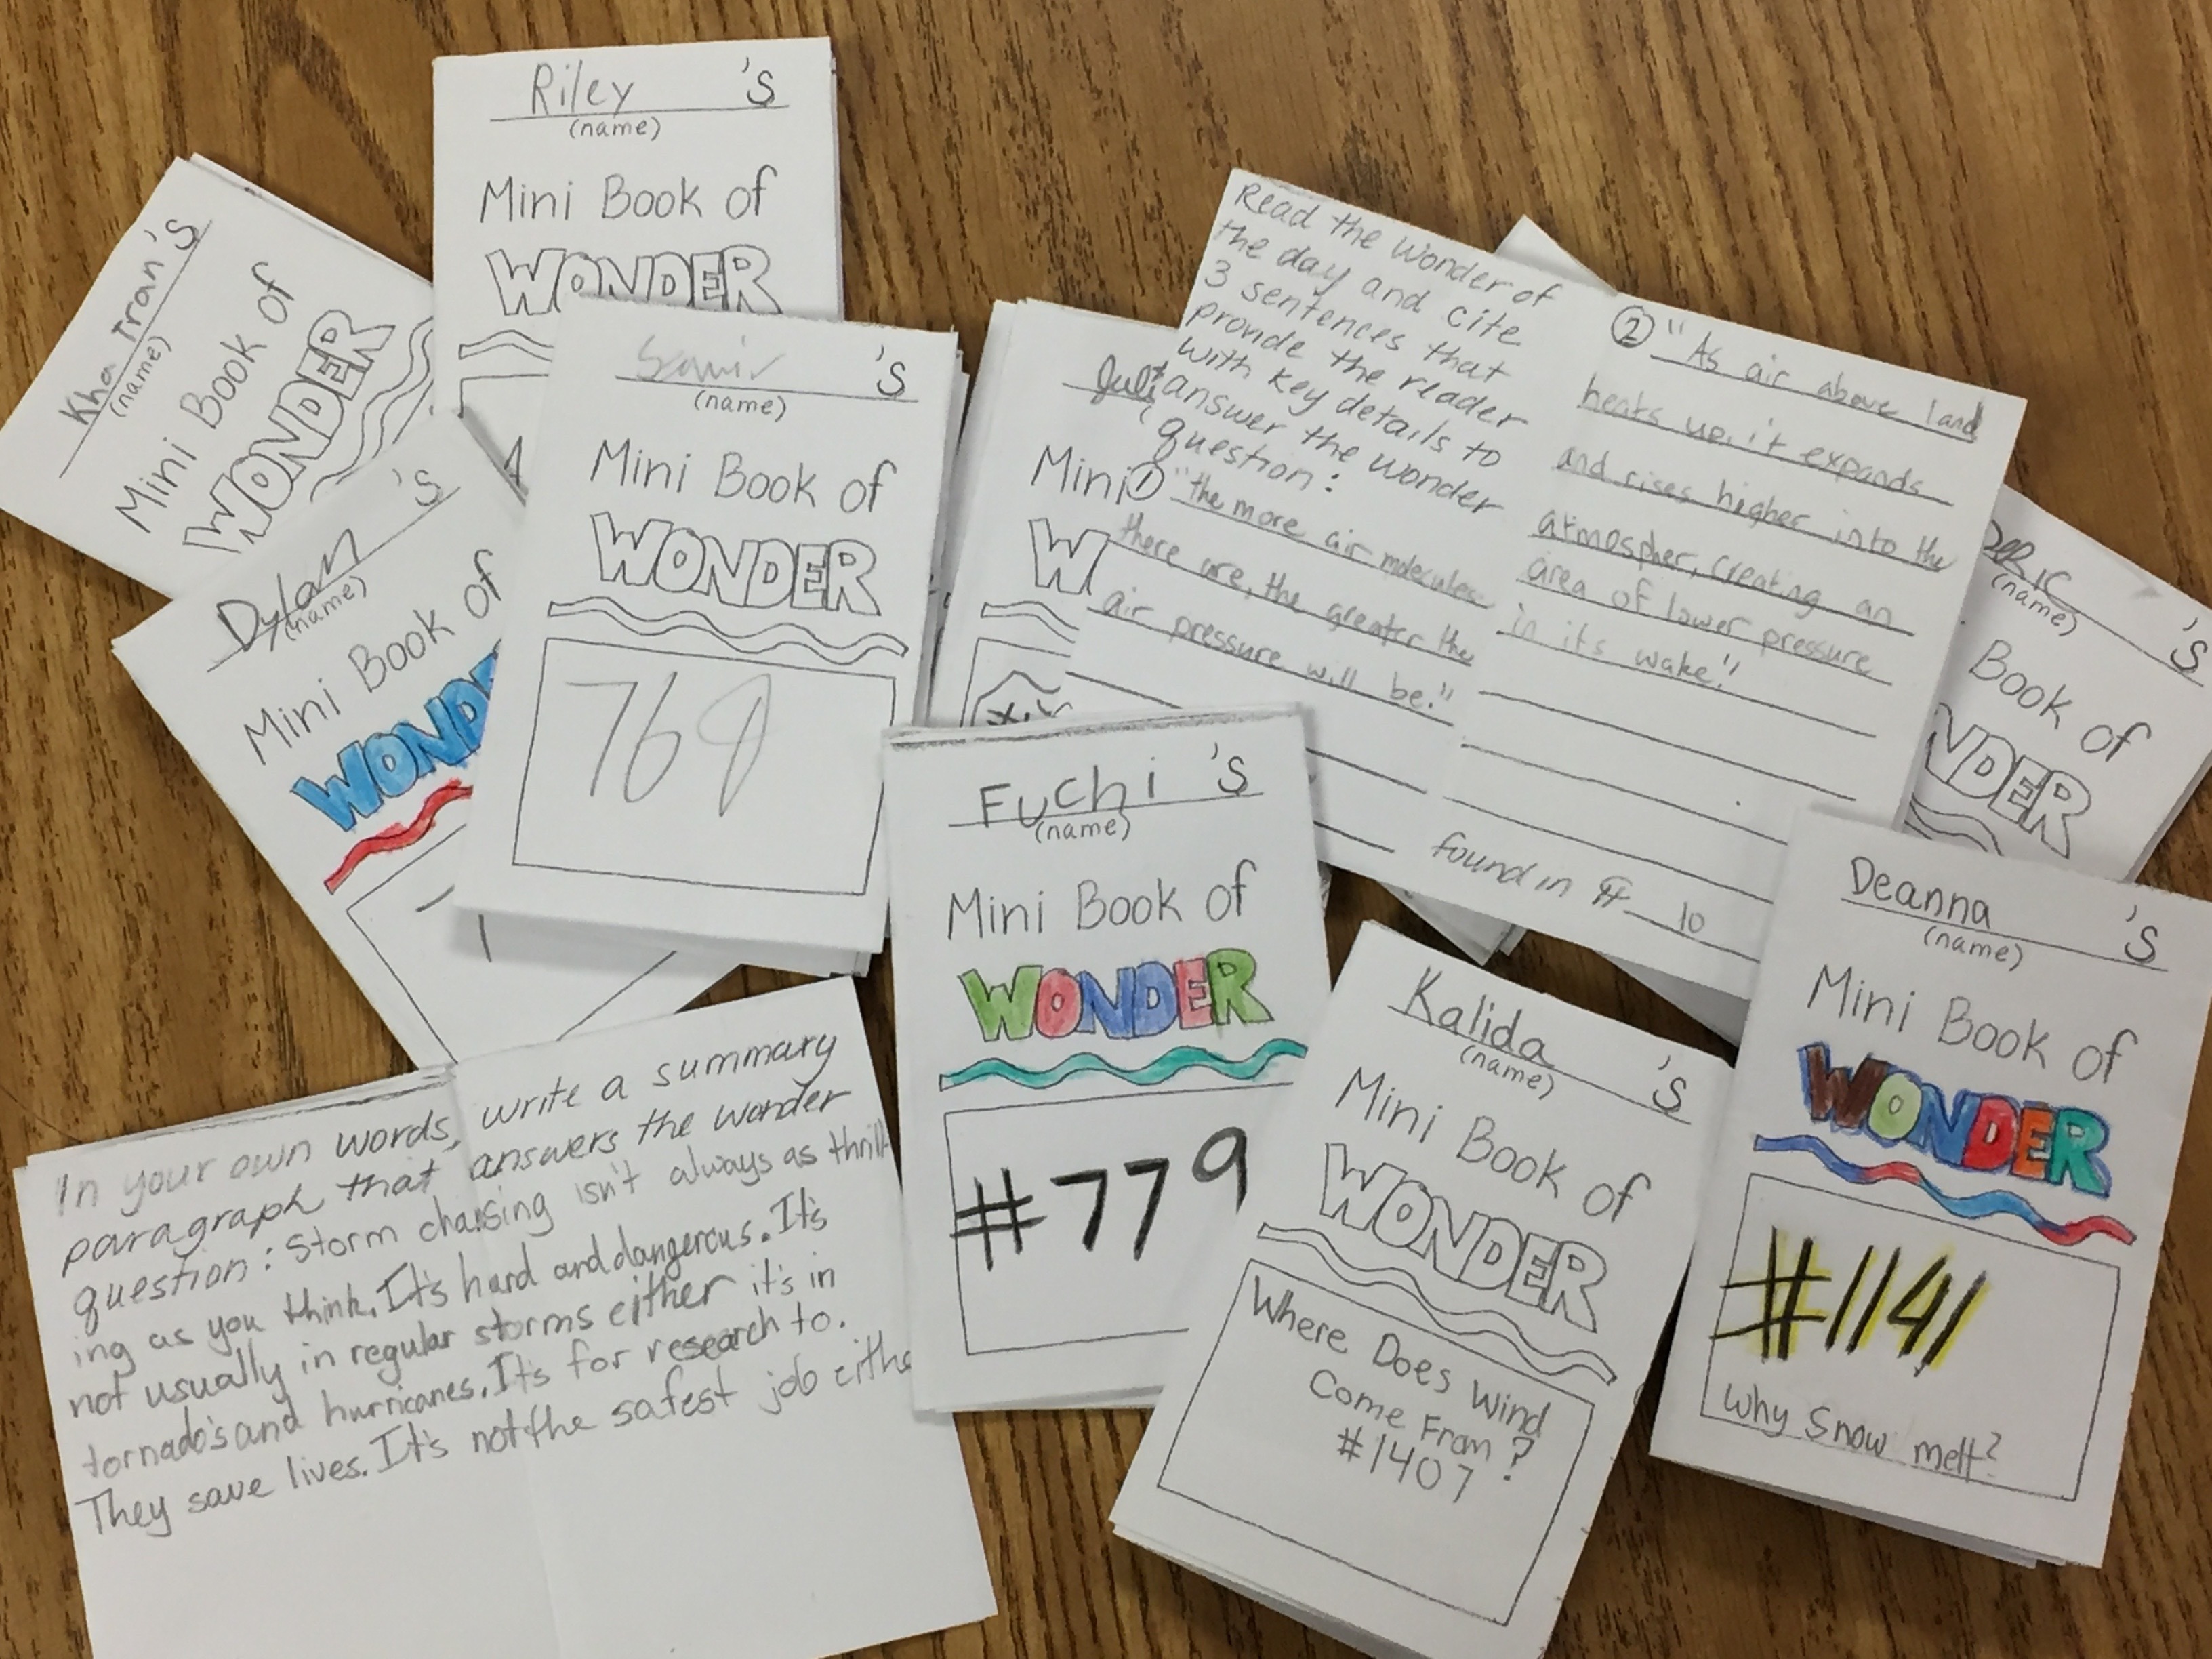 Riley 's
(name)
Mini Book of
WONDER
Kha Tran's
(name)
Mini Book of
WONDER
Dylan 's
(name)
Mini Book of
WONDE
's
(name)
Mini Book of
WONDER
768
Juli
Mini
W
Read the wonder of
the day and cite
3 sentences that
provide the reader
with key details to
answer the wonder
question:
① "the more air molecules
there are, the greater the
air pressure will be."
② "As air above land
heats up, it expands
and rises higher into the
atmospher, creating an
area of lower pressure
in its wake."
found in ¶ 10
eric
(name)
's
Book of
NDER
Fuchi 's
(name)
Mini Book of
WONDER
#779
Kalida 's
(name)
Mini Book of
WONDER
Where Does Wind
Come From?
#1407
Deanna 's
(name)
Mini Book of
WONDER
#1141
Why Snow melt?
In your own words, write a summary
paragraph that answers the wonder
question: Storm chasing isn't always as thrill
ing as you think. It's hard and dangerous. It's
not usually in regular storms either it's in
tornado's and hurricanes. It's for research to.
They save lives. It's not the safest job eithe